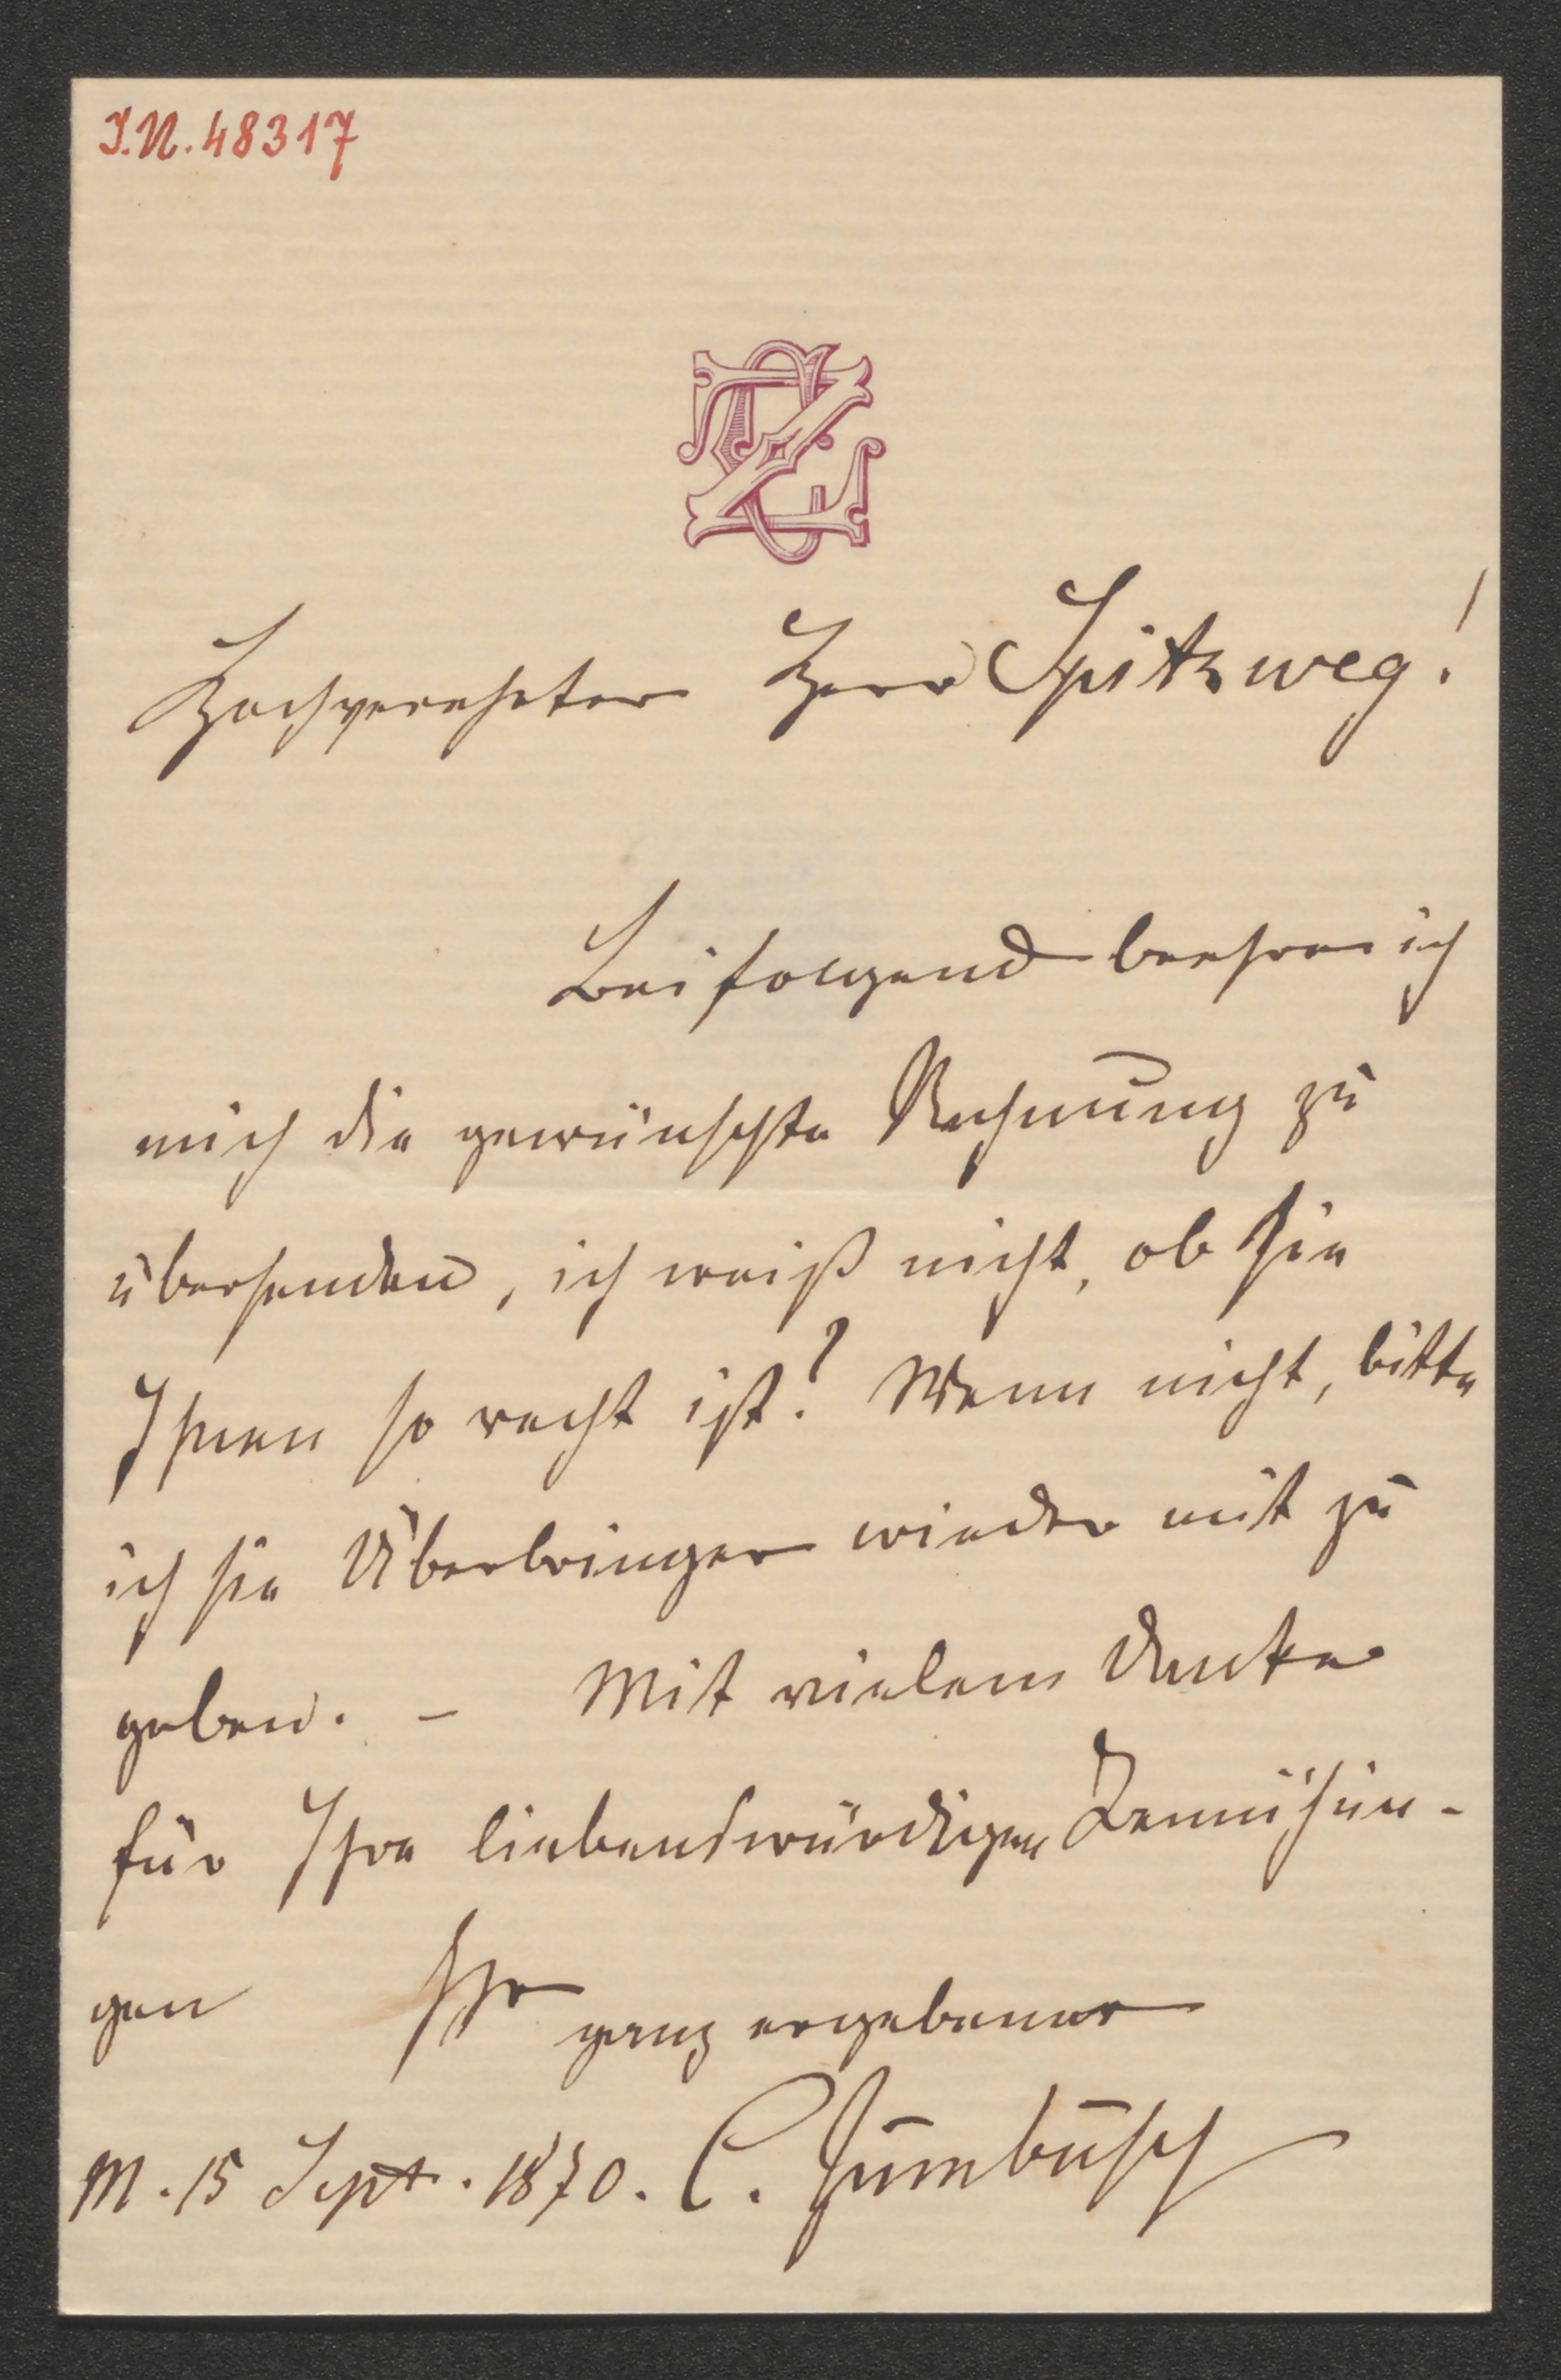 I.N. 48317
CZ
Hochverehrter Herr Spitzweg!
Beifolgend beehre ich
mich die gewünschte Rechnung zu
übersenden, ich weiß nicht, ob sie
Ihnen so recht ist? Wenn nicht, bitte
ich sie Überbringer wieder mit zu
geben. – Mit vielem Danke
für Ihre liebenswürdigen Bemühun-
gen Ihr
ganz ergebener
M. 15 Sept. 1870. C. Zumbusch